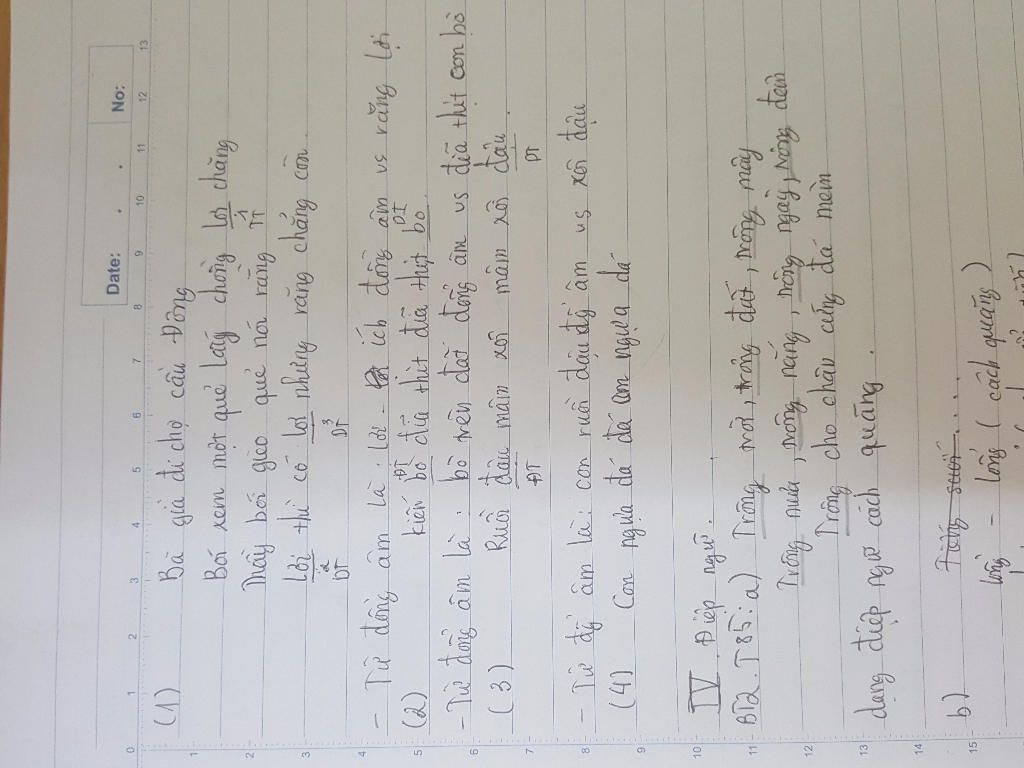 Date: . . No:
(1) Bà già đi chợ cầu Đông
Bói xem một quẻ lấy chồng lợi chăng
1
TT
Thầy bói gieo quẻ nói rằng
Lợi thì có lợi nhưng răng chẳng còn.
2 3
DT DT
- Từ đồng âm là: lợi - ích đồng âm vs răng lợi
ĐT DT
(2) Kiến bò đĩa thịt đĩa thịt bò
- Từ đồng âm là: bò trên đất đồng âm vs đĩa thịt con bò
(3) Ruồi đậu mâm xôi mâm xôi đậu.
ĐT DT
- Từ đg âm là: con ruồi đậu đg âm vs xôi đậu
(4) Con ngựa đá con ngựa đá
IV Điệp ngữ.
BT2. T85: a) Trông trời, trông đất, trông mây
Trông mưa, trông nắng, trông ngày, trông đêm
Trông cho chân cứng đá mềm
dạng điệp ngữ cách quãng.
b) Tiếng suối....
lồng - lồng (cách quãng)
0 1 2 3 4 5 6 7 8 9 10 11 12 13
1
2
3
4
5
6
7
8
9
10
11
12
13
14
15